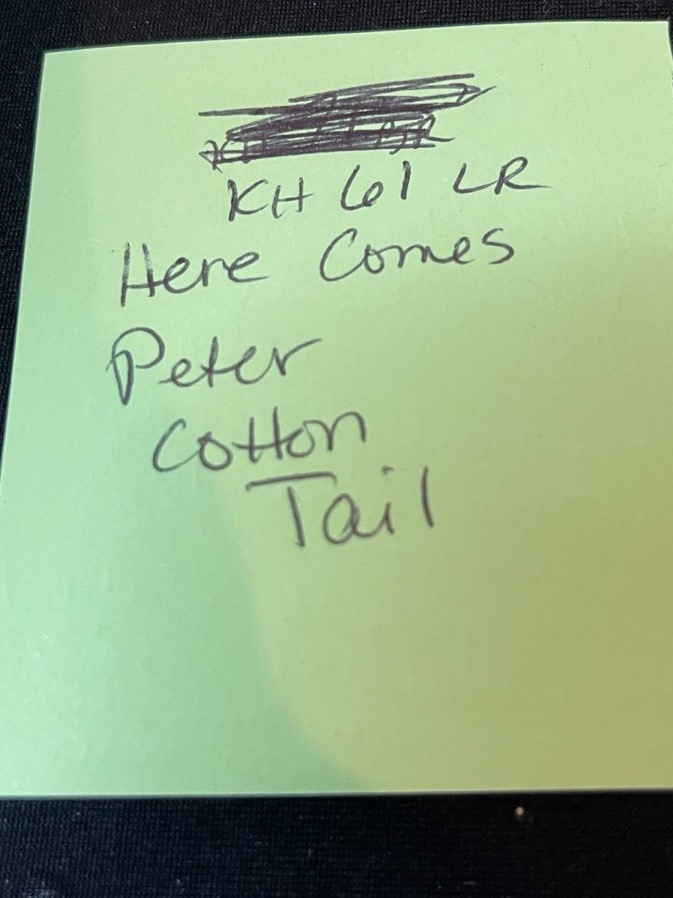 KH 61 LR
Here Comes
Peter
Cotton
Tail